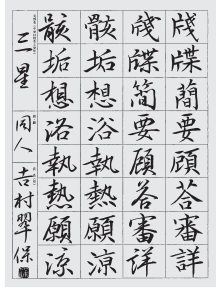 牋牒蕳要顧荅審詳
牋牒簡要顧答審詳
骸垢想浴執熱願凉
骸垢想浴執熱願涼
三星 同人 吉村翠保